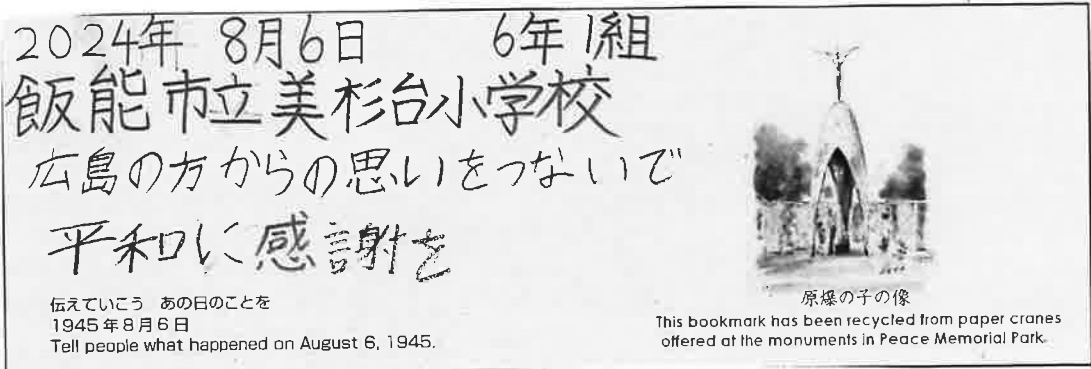 2024年 8月6日 6年1組
飯能市立美杉台小学校
広島の方からの思いをつないで
平和に感謝を
伝えていこう あの日のことを
1945年8月6日
Tell people what happened on August 6, 1945.
原爆の子の像
This bookmark has been recycled from paper cranes
offered at the monuments in Peace Memorial Park.